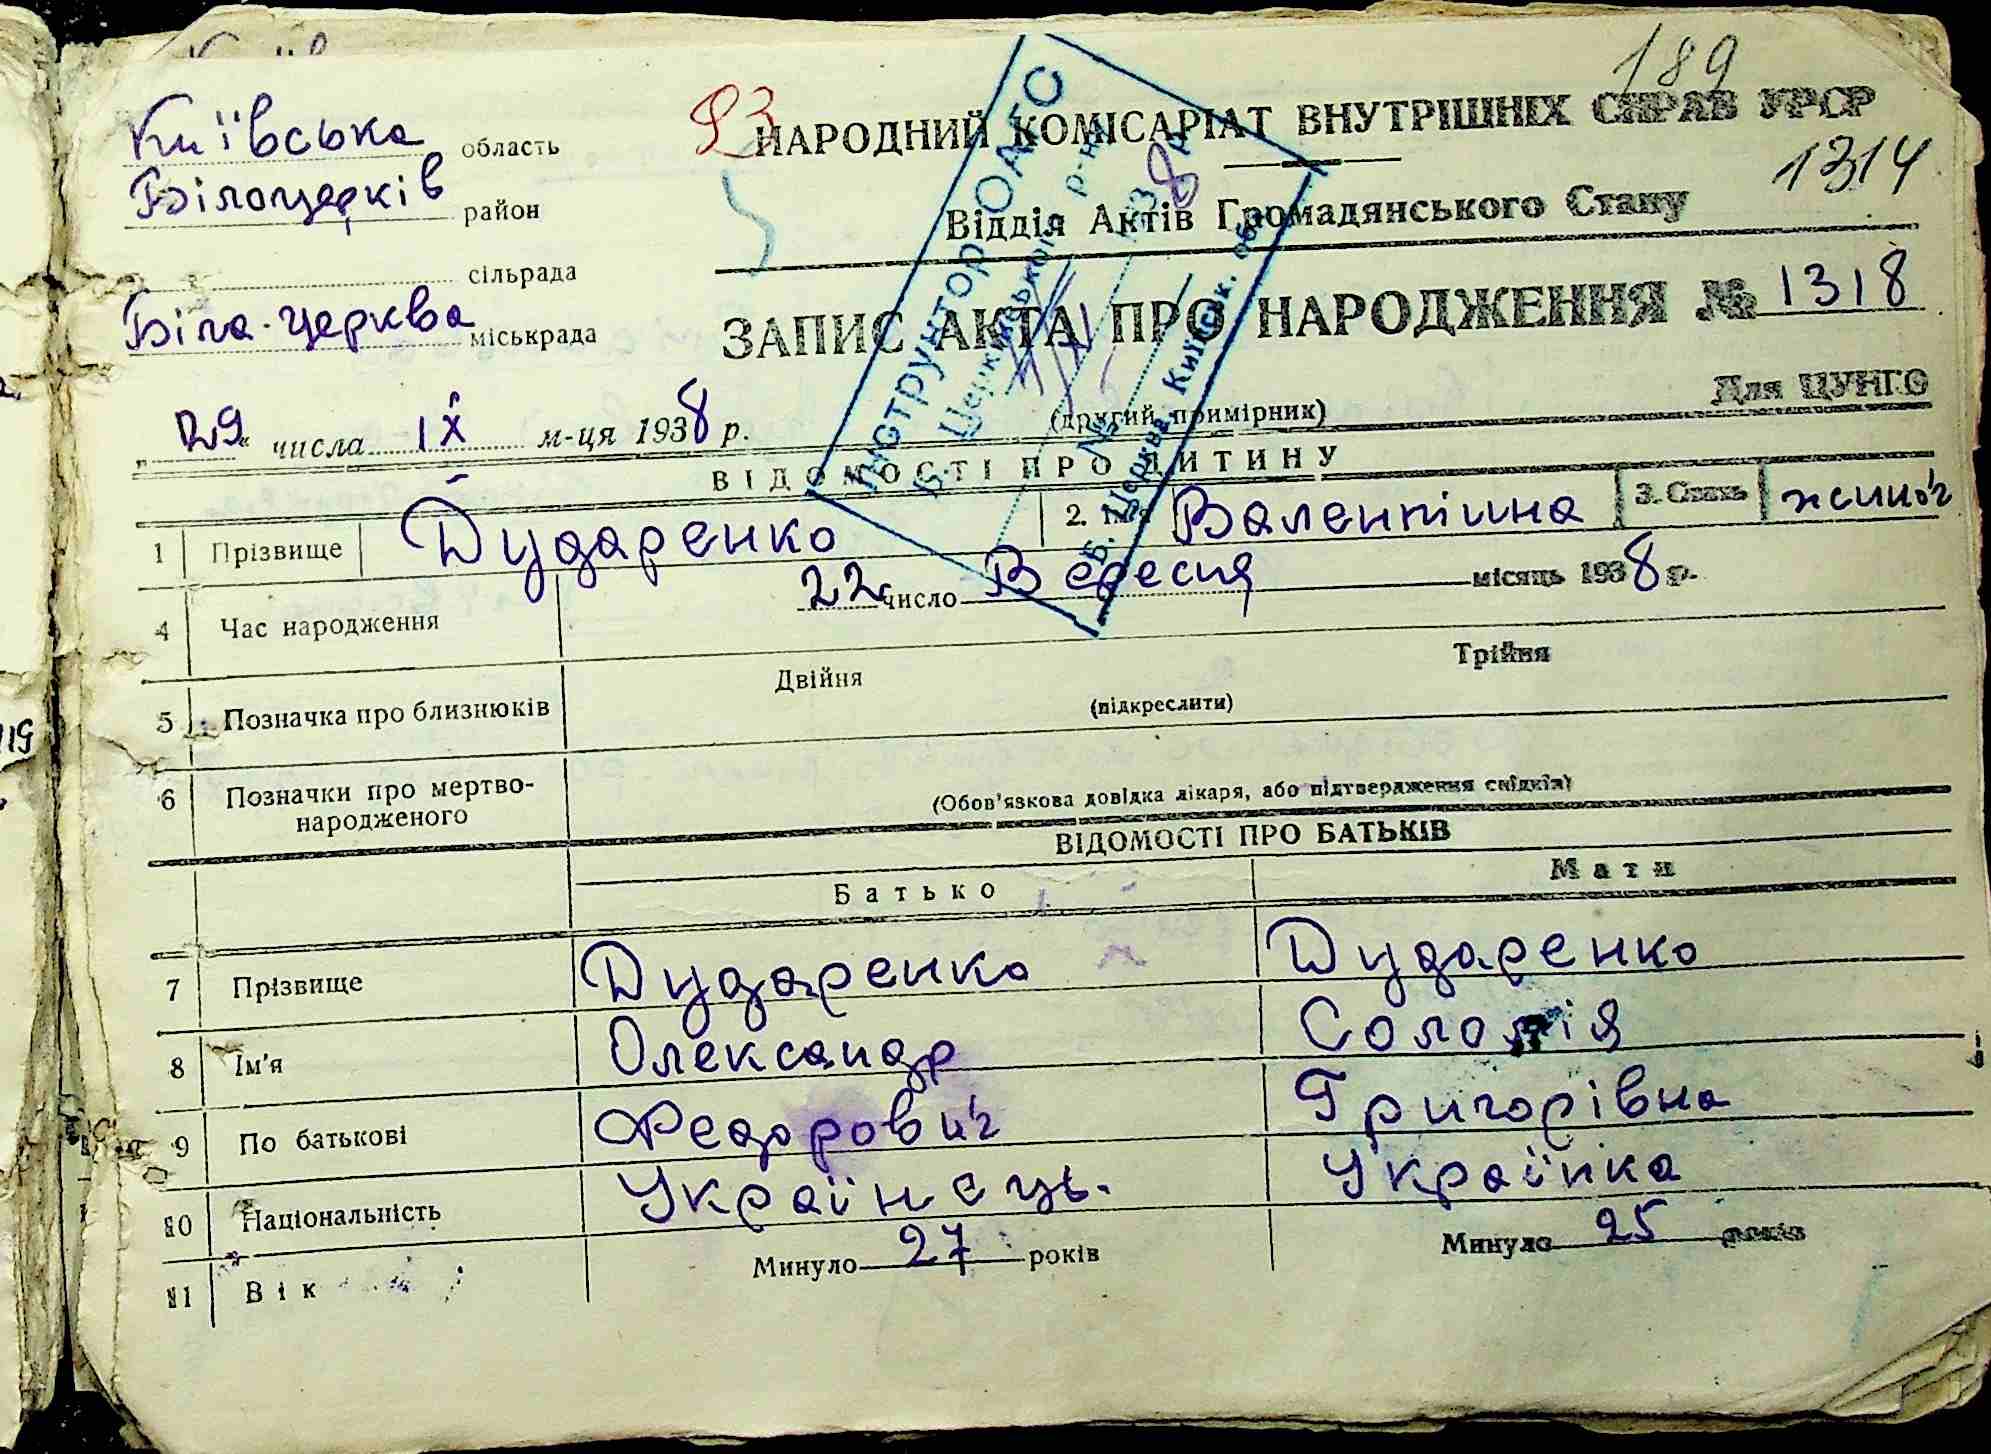 189
Київська область
93 НАРОДНИЙ КОМІСАРІАТ ВНУТРІШНІХ СПРАВ УРСР
Білоцерків район
1314
Відділ Актів Громадянського Стану
сільрада
Біла-церква міськрада
ЗАПИС АКТА ПРО НАРОДЖЕННЯ № 1318
Для ЦУНГО
„29“ числа IX м-ця 1938 р.
(другий примірник)
Інструктор ОАГС
Б. Церківського р-на
№ 1938
м. Б. Церква, Київськ. обл.
ВІДОМОСТІ ПРО ДИТИНУ
1 Прізвище Дударенко 2. Ім'я Валентина 3. Стать жіноч
4 Час народження 22 число Вересня місяць 1938 р.
5 Позначка про близнюків Двійня Трійня
(підкреслити)
6 Позначки про мертво-
народженого
(Обов'язкова довідка лікаря, або підтвердження свідків)
ВІДОМОСТІ ПРО БАТЬКІВ
Батько Мати
7 Прізвище Дударенко Дударенко
8 Ім'я Олександр Соломія
9 По батькові Федорович Григорівна
10 Національність Українець. Українка
11 Вік Минуло 27 років Минуло 25 років
119